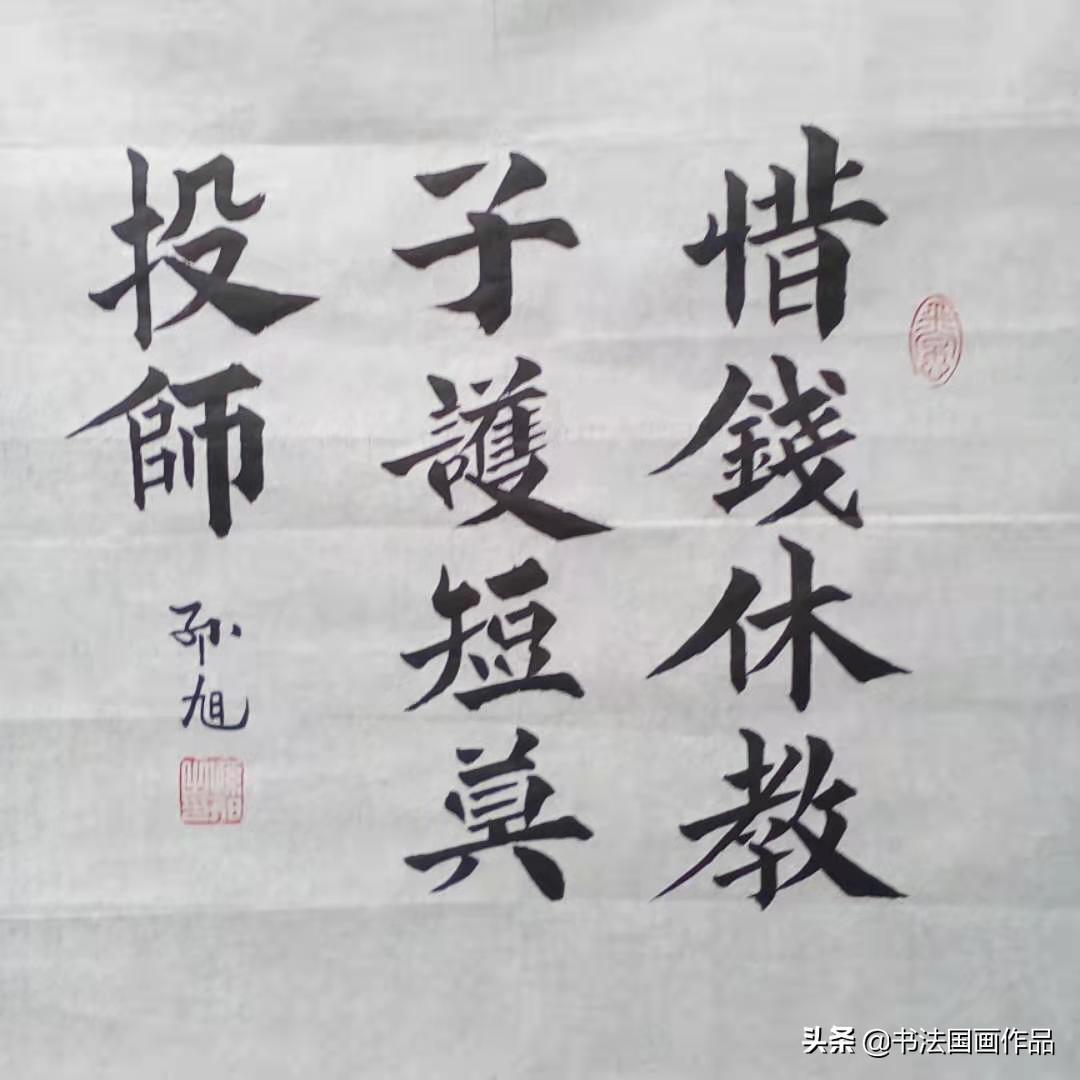 惜錢休教
子護短莫
投師
孙旭
头条 @书法国画作品